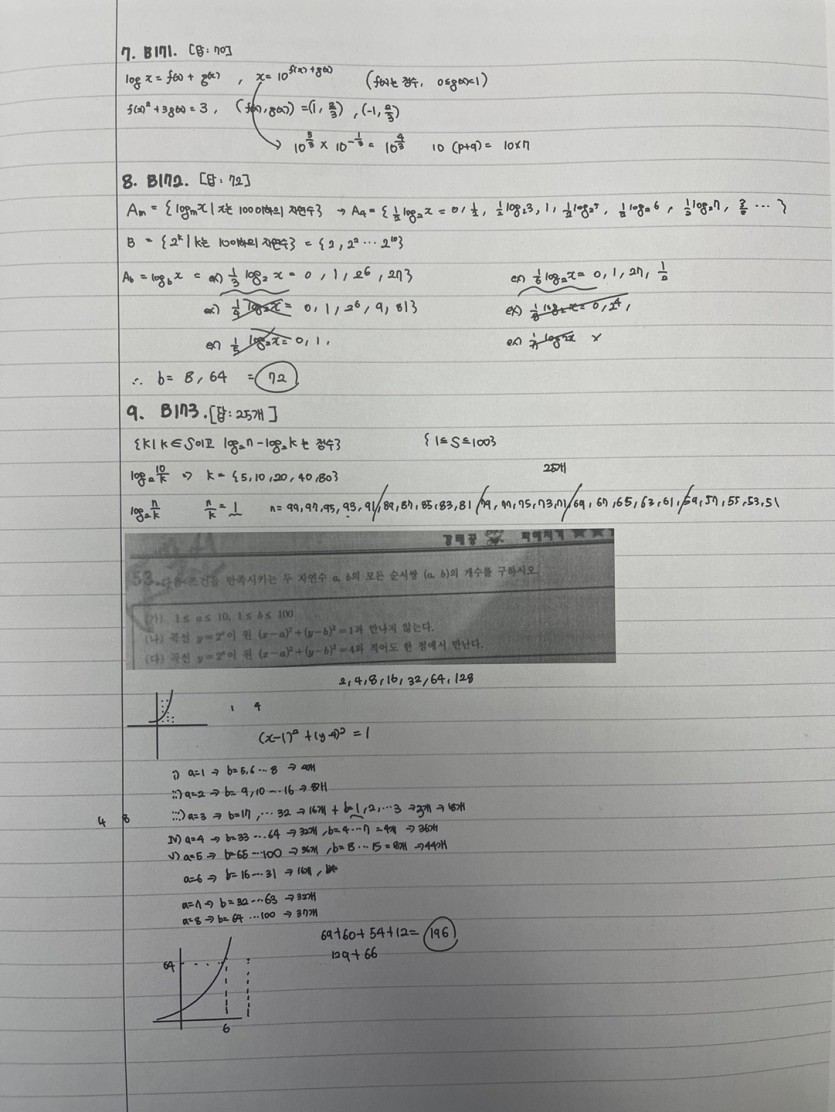 7. B171. [답: 70]
log x = f(x) + g(x) , x = 10^{f(x)+g(x)} (f(x)는 정수, 0≤g(x)<1)
f(x)² + 3g(x) = 3 , (f(x), g(x)) = (1, 2/3) , (-1, 2/3)
10^{5/3} × 10^{-1/3} = 10^{4/3} 10 (p+q) = 10×7
8. B172. [답: 72]
Am = {log_m x | x는 100이하의 자연수} → A4 = {½log₂x = 0, ½, ½log₂3, 1, ½log₂5, ½log₂6, ½log₂7, 3/2 ⋯ }
B = {2^k | k는 10이하의 자연수} = {2, 2² ⋯ 2^{10}}
Ab = log_b x = ex) 1/3 log₂ x = 0, 1, 2/3, 2/3} ex) 1/6 log₂x = 0, 1, 1/2
0, 1, 81}
0, 1,
∴ b = 8, 64 = 72
9. B173. [답: 25개]
{k | k∈S이고 log₂n - log₂k는 정수} {1≤S≤100}
log₂ 10/k ⇒ k = {5, 10, 20, 40, 80} 25개
log₂ n/k n/k = 1 n = 99, 97, 95, 93, 91 / 89, 87, 85, 83, 81 / 79, 77, 75, 73, 71 / 69, 67, 65, 63, 61 / 59, 57, 55, 53, 51
53. 다음 조건을 만족시키는 두 자연수 a, b의 모든 순서쌍 (a, b)의 개수를 구하시오.
(가) 1≤a≤10, 1≤b≤100
(나) 곡선 y=2^x이 원 (x-a)²+(y-b)²=1과 만나지 않는다.
(다) 곡선 y=2^x이 원 (x-a)²+(y-b)²=4와 적어도 한 점에서 만난다.
2, 4, 8, 16, 32, 64, 128
1 4
(x-1)² + (y-4)² = 1
i) a=1 → b=5, 6 ⋯ 8 → 4개
ii) a=2 → b=9, 10 ⋯ 16 → 8개
iii) a=3 → b=17, ⋯ 32 → 16개 + b=1, 2, ⋯ 3 → 3개 → 19개
4 8
iv) a=4 → b=33 ⋯ 64 → 32개, b=4 ⋯ 7 = 4개 → 36개
v) a=5 → b=65 ⋯ 100 → 36개, b=8 ⋯ 15 = 8개 → 44개
a=6 → b=16 ⋯ 31 → 16개,
a=7 → b=32 ⋯ 63 → 32개
a=8 → b=64 ⋯ 100 → 37개
69+60+54+12 = 196
129+66
64
6